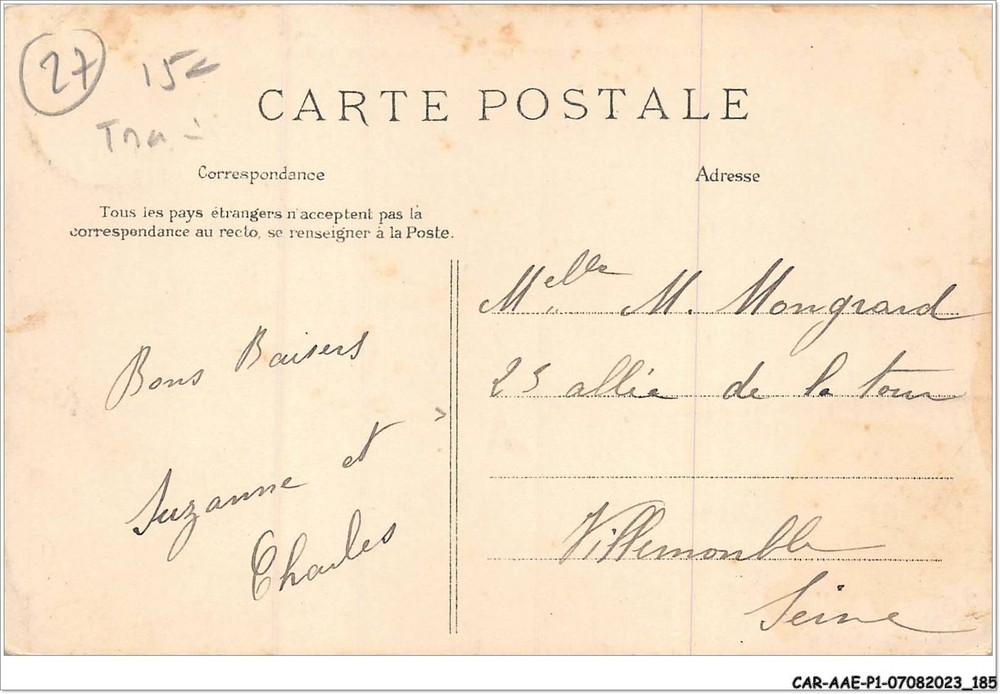 27 15€
CARTE POSTALE
Correspondance
Adresse
Tous les pays étrangers n'acceptent pas la
correspondance au recto, se renseigner à la Poste.
Melle M. Mongrard
25 allée de la tour
Villemomble
Seine
Bons Baisers
Suzanne et
Charles
CAR-AAE-P1-07082023_185